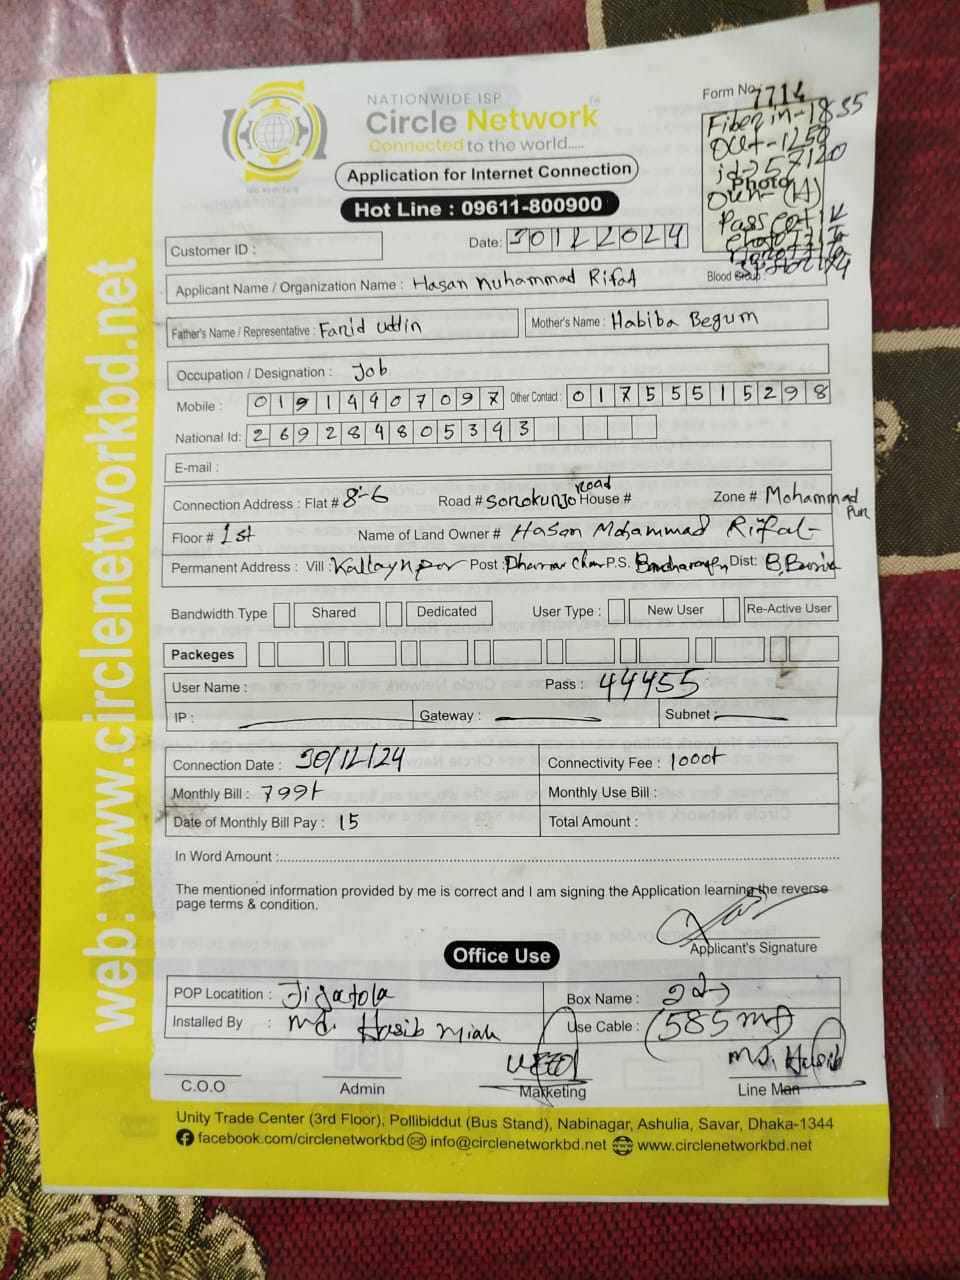 NATIONWIDE ISP
Circle Network
Connected to the world.....
Application for Internet Connection
Hot Line : 09611-800900
Form No. 7714
Fiber in-1835
Out-1250
id→57120
Photo
Onu- (A)
Pass
Customer ID :
Date: 30122024
Blood Group :
Applicant Name / Organization Name : Hasan Muhammad Rifat
Father's Name / Representative : Farid Uddin
Mother's Name : Habiba Begum
Occupation / Designation : Job
Mobile : 01914907097 Other Contact : 01755515298
National Id: 269284805343
E-mail :
Connection Address : Flat # 8-6 Road # Sonokunjo road House # Zone # Mohammad Pur
Floor # 1st Name of Land Owner # Hasan Mohammad Rifat
Permanent Address : Vill : Post : P.S. Dist:
Bandwidth Type Shared Dedicated User Type : New User Re-Active User
Packeges
User Name : Pass : 44455
IP : Gateway : Subnet :
Connection Date : 30/12/24 Connectivity Fee : 1000t
Monthly Bill : 799t Monthly Use Bill :
Date of Monthly Bill Pay : 15 Total Amount :
In Word Amount :
The mentioned information provided by me is correct and I am signing the Application learning the reverse
page terms & condition.
Applicant's Signature
Office Use
POP Locatition : Jigatola Box Name :
Installed By : Md. Hasib Miah Use Cable : 585
Md. Hasib
C.O.O Admin Marketing Line Man
Unity Trade Center (3rd Floor), Pollibiddut (Bus Stand), Nabinagar, Ashulia, Savar, Dhaka-1344
facebook.com/circlenetworkbd info@circlenetworkbd.net www.circlenetworkbd.net
web: www.circlenetworkbd.net